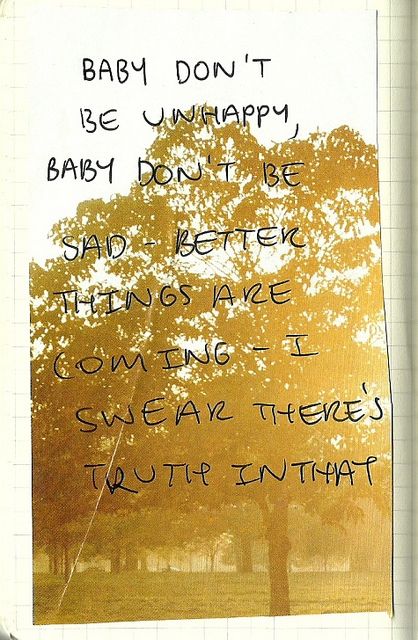 BABY DON'T
BE UNHAPPY,
BABY DON'T BE
SAD - BETTER
THINGS ARE
COMING - I
SWEAR THERE'S
TRUTH IN THAT